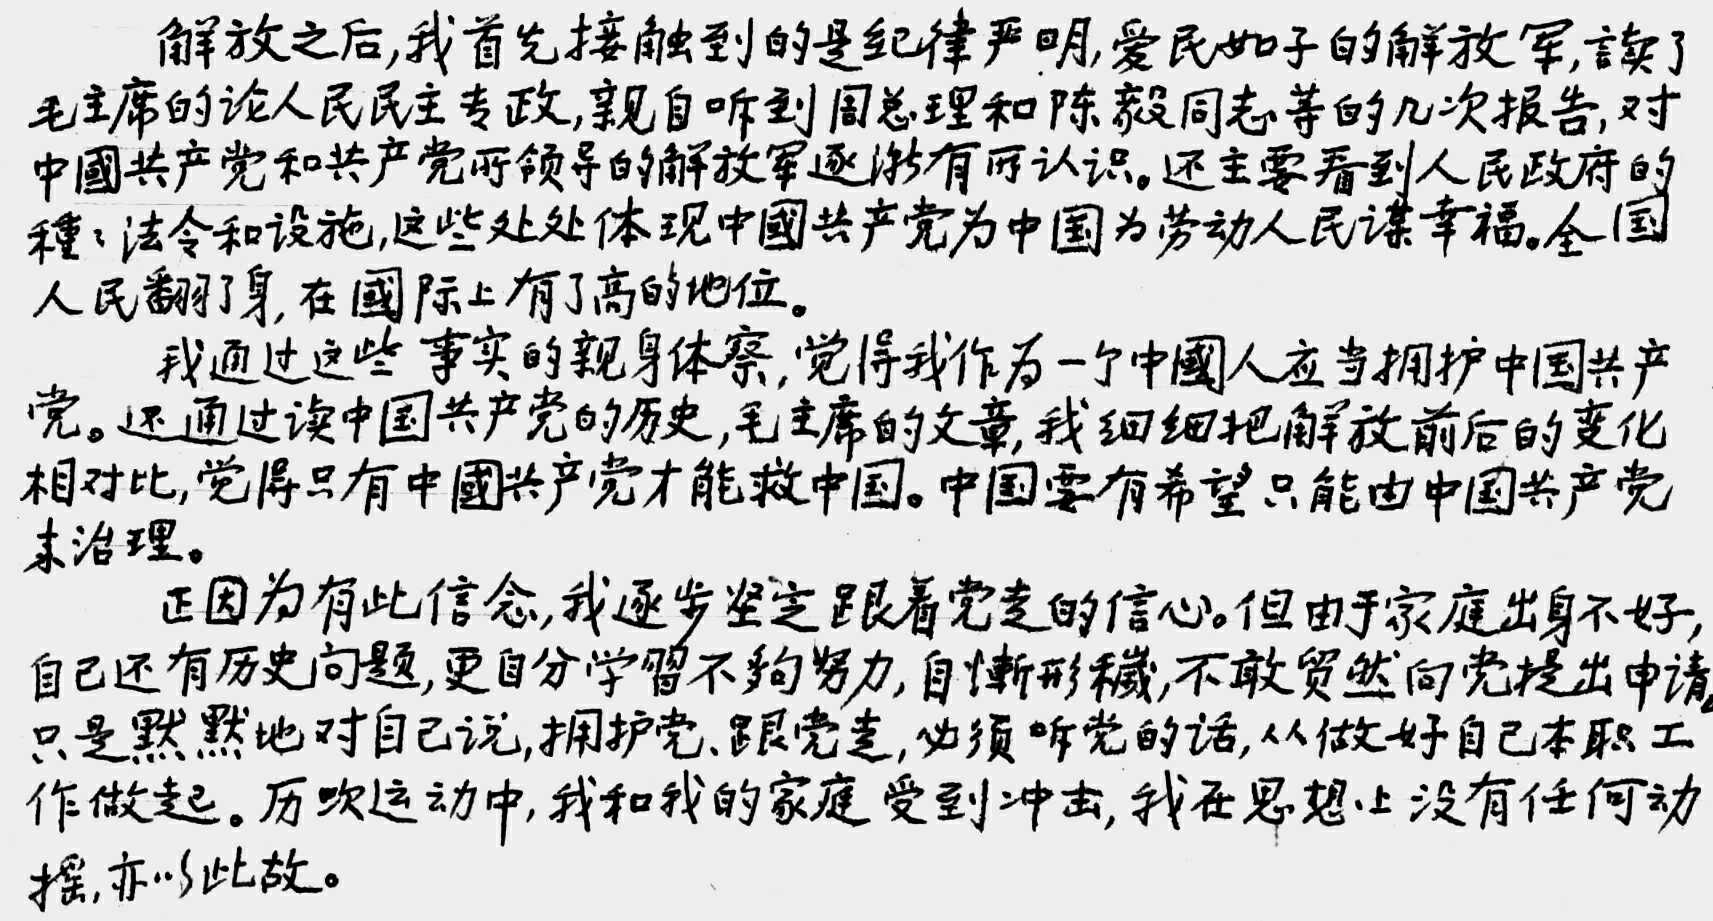 解放之后,我首先接触到的是纪律严明,爱民如子的解放军,讀了
毛主席的论人民民主专政,親自听到周总理和陈毅同志等的几次报告,对
中國共产党和共产党所领导的解放军逐渐有所认识。还主要看到人民政府的
種々法令和设施,这些处处体现中國共产党为中国为劳动人民谋幸福。全国
人民翻了身,在國际上有了高的地位。
我通过这些事实的親身体察,觉得我作为一个中國人应当拥护中国共产
党。还通过读中国共产党的历史,毛主席的文章,我细细把解放前后的变化
相对比,觉得只有中國共产党才能救中国。中国要有希望只能由中国共产党
来治理。
正因为有此信念,我逐步坚定跟着党走的信心。但由于家庭出身不好,
自己还有历史问题,更自分学習不夠努力,自慚形穢,不敢贸然向党提出申请。
只是默默地对自己说,拥护党、跟党走,必须听党的话,从做好自己本职工
作做起。历次运动中,我和我的家庭受到冲击,我在思想上没有任何动
摇,亦以此故。